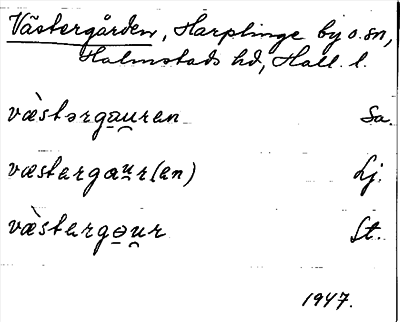 Västergården, Harplinge by o. sn,
Halmstads hd, Hall. l.
væ̀stərga̠u̯ren Sa.
væstergau̯r(en) Lj.
væ̀stergɵ̠u̯r St.
1947.